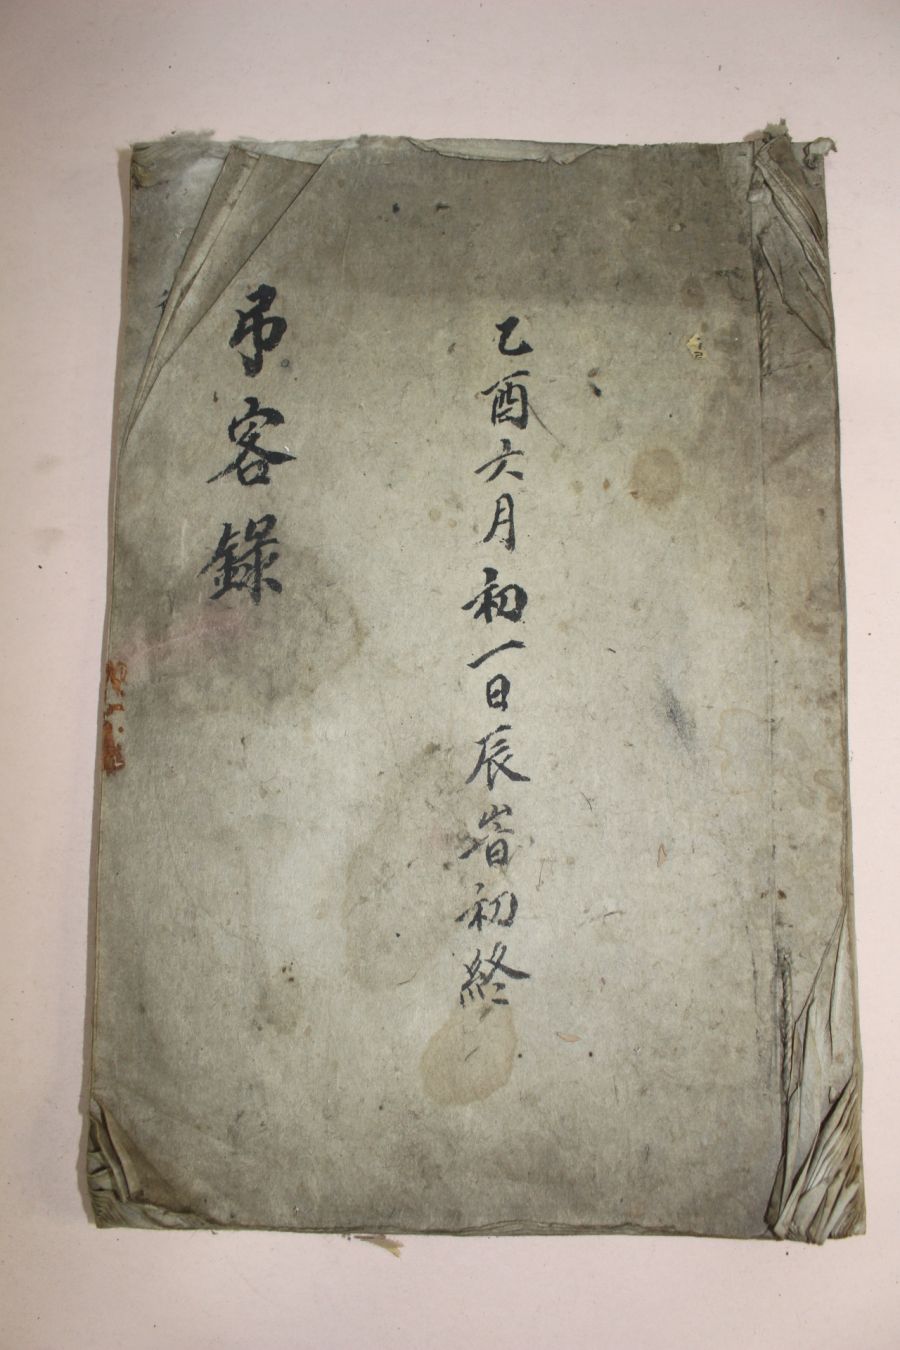 乙酉六月初一日辰峕初終
弔客錄